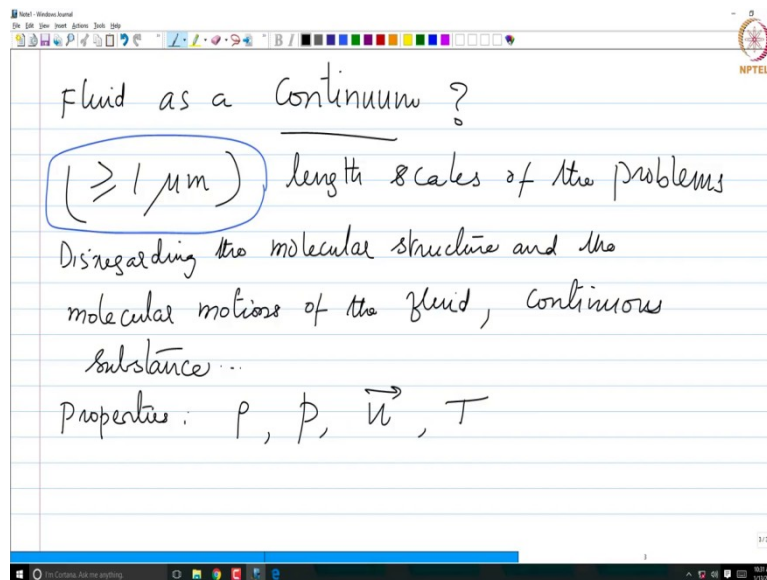 Note1 - Windows Journal
File Edit View Insert Actions Tools Help
NPTEL
Fluid as a Continuum ?
( ≥ 1 μm ) length scales of the problems
Disregarding the molecular structure and the
molecular motions of the fluid, continuous
substance...
Properties: ρ, p, u⃗, T
I'm Cortana. Ask me anything.